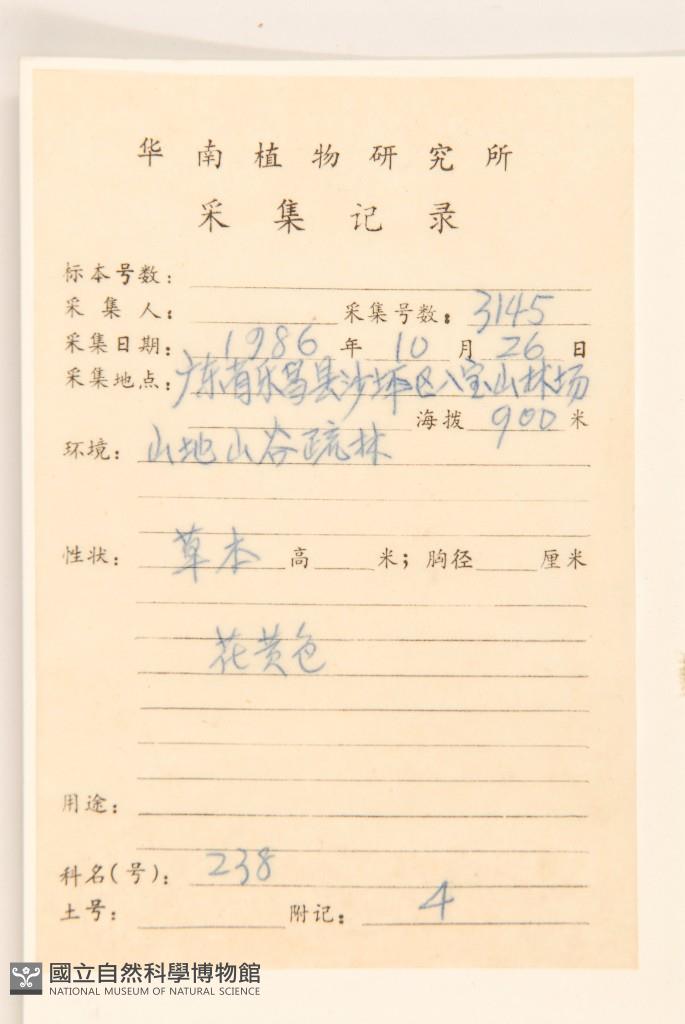 华南植物研究所
采集记录
标本号数：
采集人： 采集号数：3145
采集日期：1986年10月26日
采集地点：广东省乐昌县沙坪区八宝山林场
海拨900米
环境：山地山谷疏林
性状：草本高 米；胸径 厘米
花黄色
用途：
科名(号)：238
土号： 附记：4
國立自然科學博物館
NATIONAL MUSEUM OF NATURAL SCIENCE